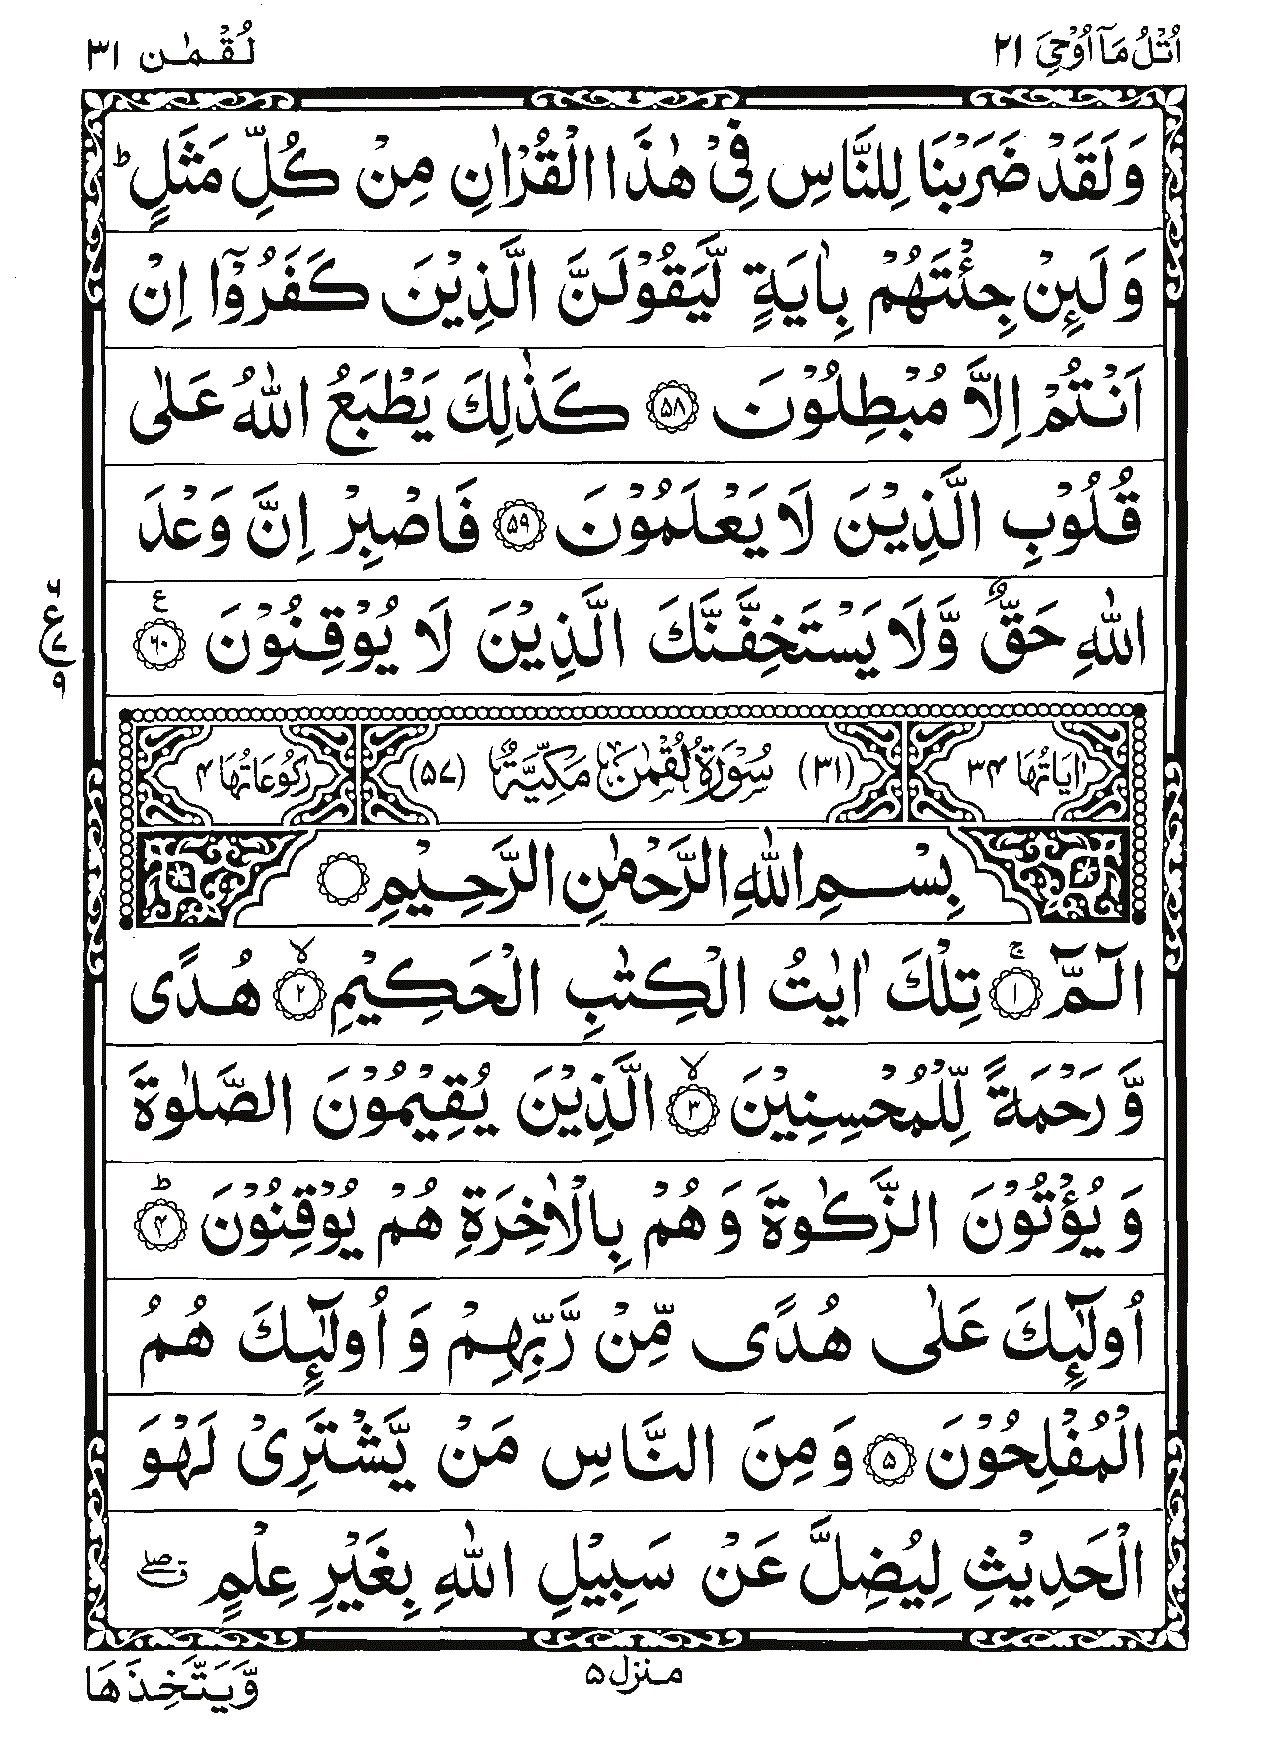 اُتْلُ مَآ اُوْحِيَ ٢١
لُقْمٰن ٣١
وَلَقَدْ ضَرَبْنَا لِلنَّاسِ فِيْ هٰذَا الْقُرْاٰنِ مِنْ كُلِّ مَثَلٍ ؕ
وَلَىِٕنْ جِئْتَهُمْ بِاٰيَةٍ لَّيَقُوْلَنَّ الَّذِيْنَ كَفَرُوْٓا اِنْ
اَنْتُمْ اِلَّا مُبْطِلُوْنَ ۝۵۸ كَذٰلِكَ يَطْبَعُ اللّٰهُ عَلٰى
قُلُوْبِ الَّذِيْنَ لَا يَعْلَمُوْنَ ۝۵۹ فَاصْبِرْ اِنَّ وَعْدَ
اللّٰهِ حَقٌّ وَّلَا يَسْتَخِفَّنَّكَ الَّذِيْنَ لَا يُوْقِنُوْنَ ۝۶۰ ع
ع
۹
اٰيَاتُهَا ۳۴ (۳۱) سُوْرَةُ لُقْمٰنَ مَكِّيَّةٌ (۵۷) رُكُوْعَاتُهَا ۴
بِسْمِ اللّٰهِ الرَّحْمٰنِ الرَّحِيْمِ ۝
الٓمّٓ ۝۱ ۚ تِلْكَ اٰيٰتُ الْكِتٰبِ الْحَكِيْمِ ۝۲ ۙ هُدًى
وَّرَحْمَةً لِّلْمُحْسِنِيْنَ ۝۳ ۙ الَّذِيْنَ يُقِيْمُوْنَ الصَّلٰوةَ
وَيُؤْتُوْنَ الزَّكٰوةَ وَهُمْ بِالْاٰخِرَةِ هُمْ يُوْقِنُوْنَ ۝۴ ؕ
اُولٰٓىِٕكَ عَلٰى هُدًى مِّنْ رَّبِّهِمْ وَاُولٰٓىِٕكَ هُمُ
الْمُفْلِحُوْنَ ۝۵ وَمِنَ النَّاسِ مَنْ يَّشْتَرِيْ لَهْوَ
الْحَدِيْثِ لِيُضِلَّ عَنْ سَبِيْلِ اللّٰهِ بِغَيْرِ عِلْمٍ ۖق
منزل ۵
وَّيَتَّخِذَهَا